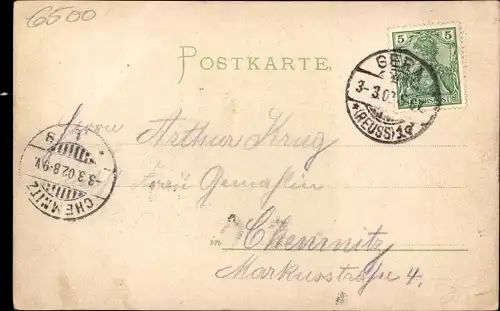 6500
POSTKARTE.
5 5
GERA
3-3.02
*(REUSS)1d
Herrn Arthur Krug
Frau Gemahlin
in Chemnitz
Markusstraße 4.
CHEMNITZ
-3.3.02.8-9.V.